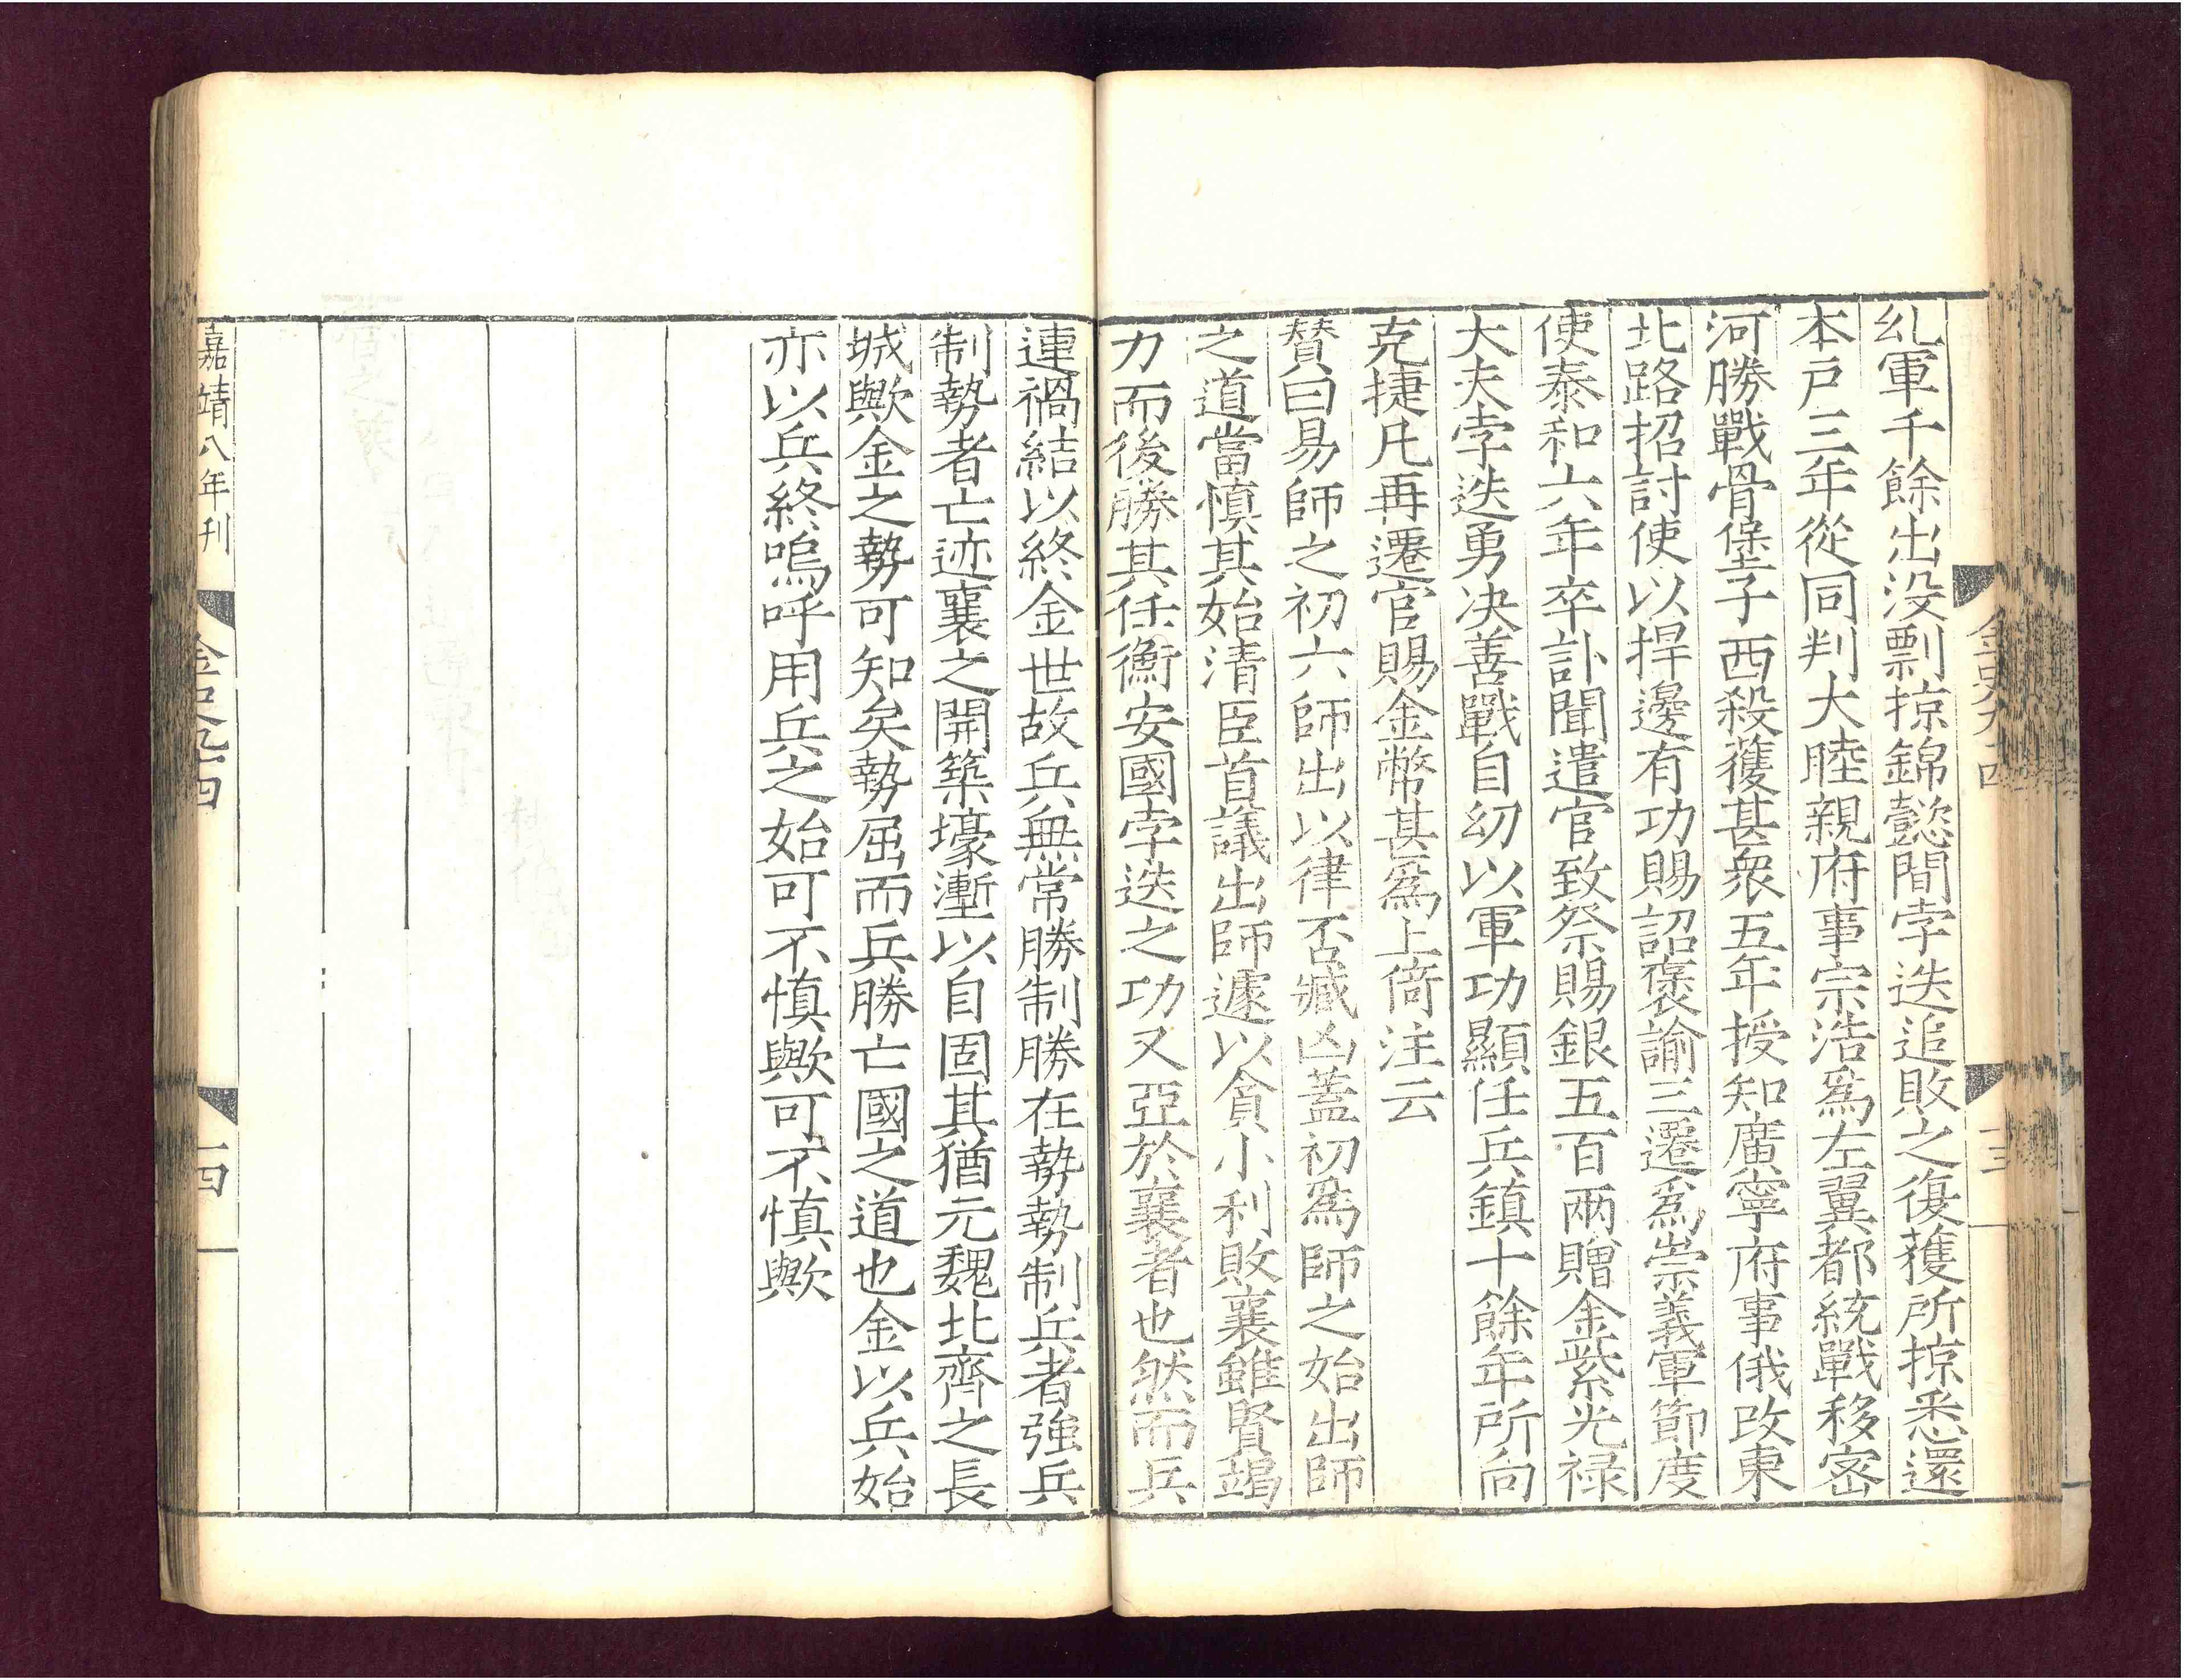 糺軍千餘出没剽掠錦懿間孛迭追敗之復獲所掠悉還
本戸三年從同判大睦親府事宗浩爲左翼都統戰移宻
河勝戰骨堡子西殺獲甚衆五年授知廣寧府事俄改東
北路招討使以捍邊有功賜詔褒諭三遷爲崇義軍節度
使泰和六年卒訃聞遣官致祭賜銀五百兩贈金紫光禄
大夫孛迭勇决善戰自幼以軍功顯任兵鎮十餘年所向
克捷凡再遷官賜金幣其爲上倚注云
賛曰易師之初六師出以律否臧凶蓋初爲師之始出師
之道當慎其始清臣首議出師遽以貪小利敗襄雖賢竭
力而後勝其任衡安國孛迭之功又亞於襄者也然而兵
金史九十四
十三
連禍結以終金世故兵無常勝制勝在勢勢制兵者強兵
制勢者亡迹襄之開築壕壍以自固其猶元魏北齊之長
城歟金之勢可知矣勢屈而兵勝亡國之道也金以兵始
亦以兵終嗚呼用兵之始可不慎歟可不慎歟
嘉靖八年刊
金史九十四
十四